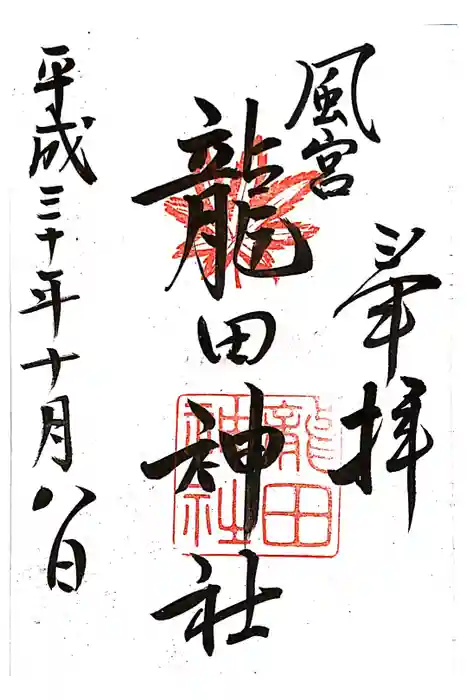 奉拝
風宮
龍田神社
龍田神社
平成三十年十月八日